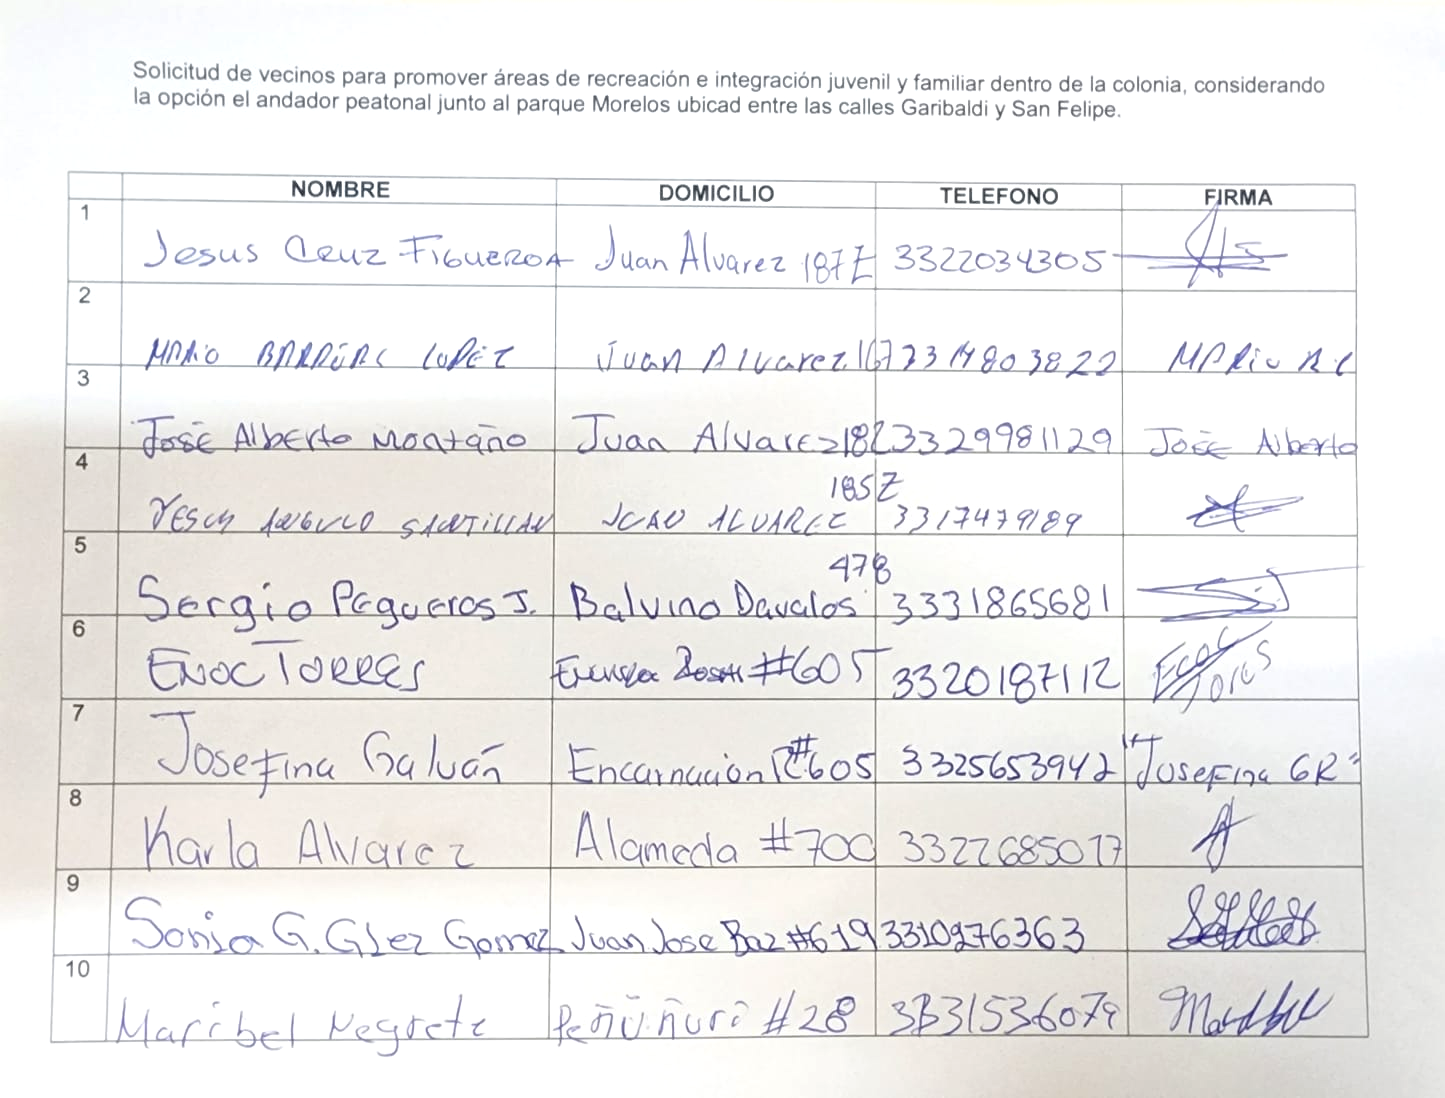 Solicitud de vecinos para promover áreas de recreación e integración juvenil y familiar dentro de la colonia, considerando
la opción el andador peatonal junto al parque Morelos ubicad entre las calles Garibaldi y San Felipe.
NOMBRE DOMICILIO TELEFONO FIRMA
1 Jesus Cruz Figueroa Juan Alvarez 187Z 3322034305
2 Mario López Juan Alvarez 167 Mario
3 José Alberto Montaño Juan Alvarez 3329981129 José Alberto
4 Angulo Santillan Juan Alvarez 185Z 3317479189
5 Sergio Pegueros J. Balvino Davalos 478 3331865681
6 Enoc Torres #605 3320187112 Enoc Torres
7 Josefina Galván Encarnación R #605 3325653942 "Josefina GR"
8 Karla Alvarez Alameda #700 3322685017
9 Sonia G. Glez Gomez Juan Jose Baz #619 3310276363
10 Maribel Negrete #28 3331536079